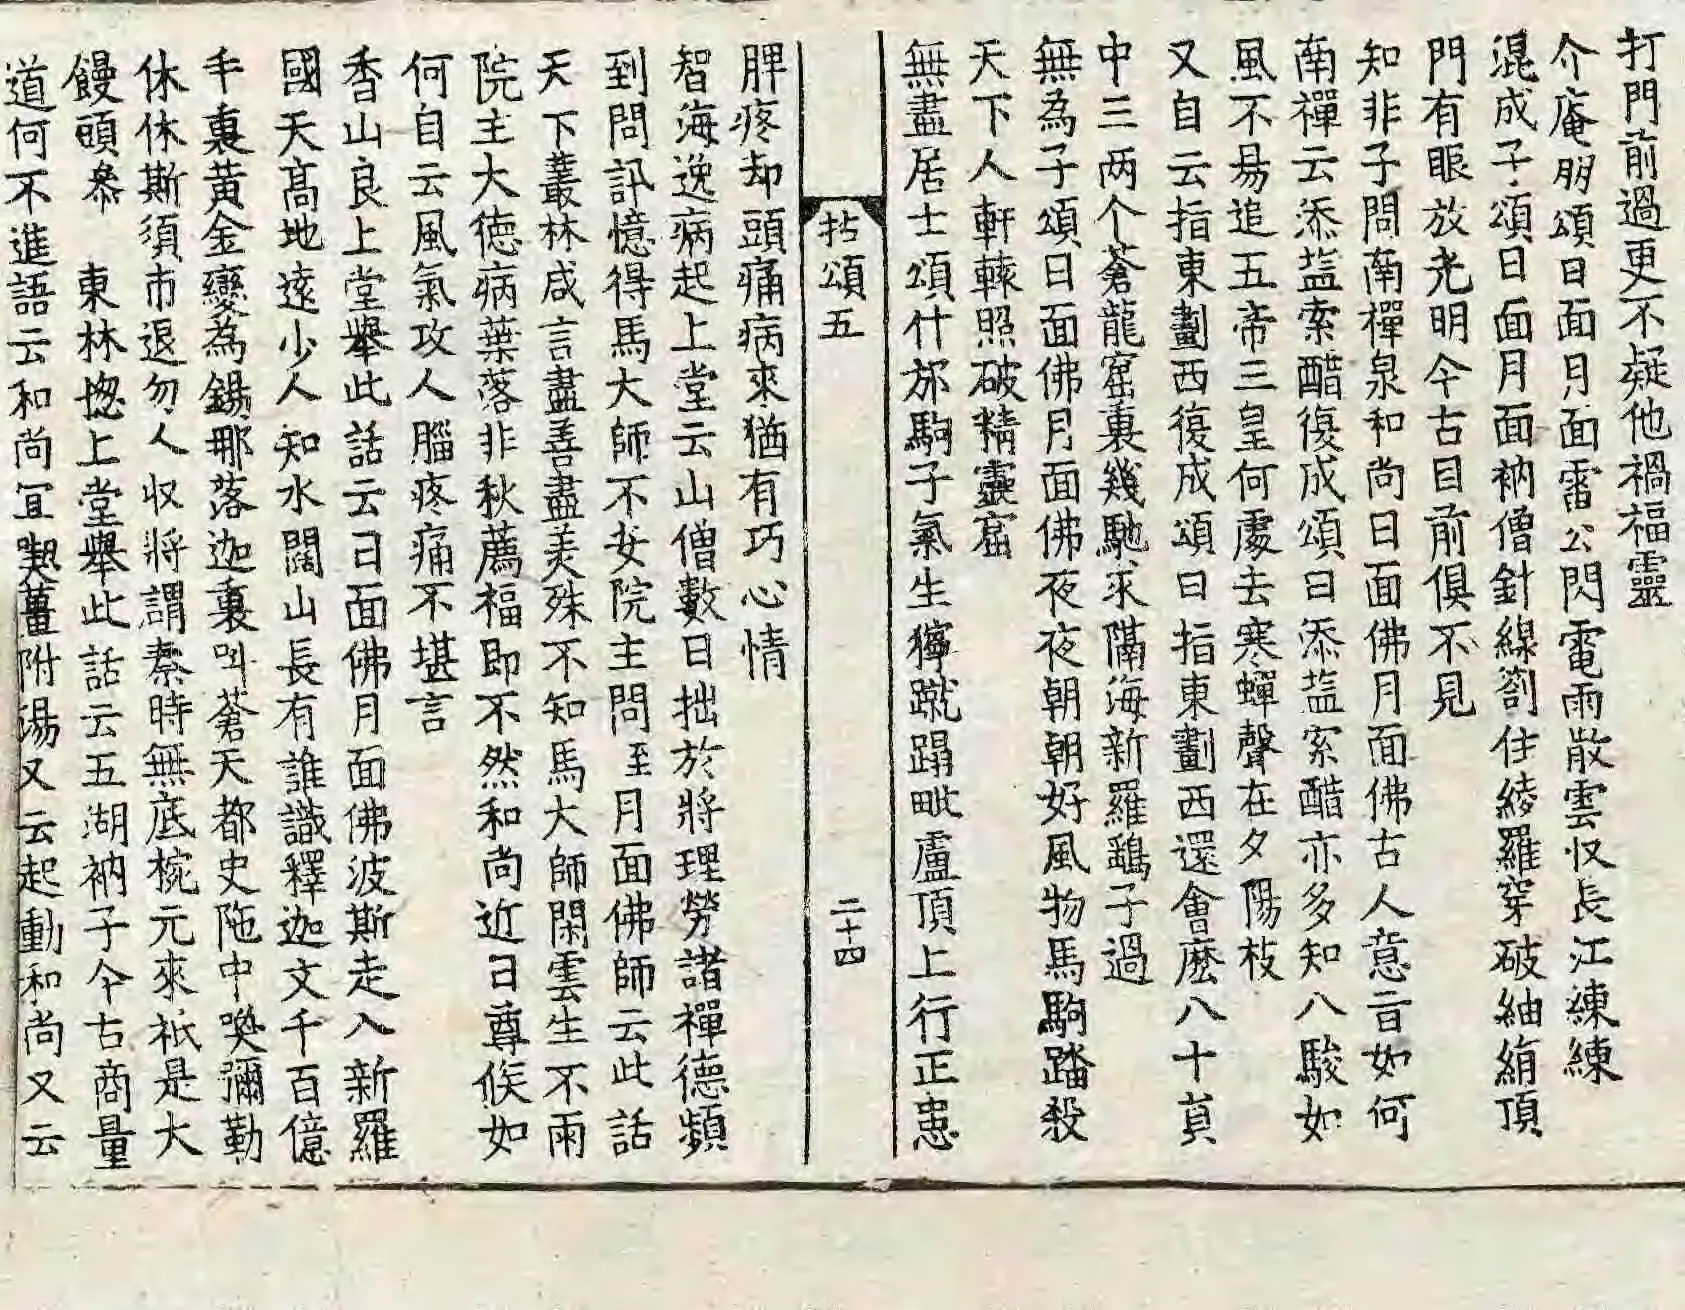 打門前過更不疑他禍福靈
介庵朋頌日面月面雷公閃電雨散雲収長江練練
混成子頌日面月面衲僧針線劄住綾羅穿破紬絹頂
門有眼放光明今古目前俱不見
知非子問南禪泉和尚日面佛月面佛古人意旨如何
南禪云添塩索醋復成頌曰添塩索醋亦多知八駿如
風不易追五帝三皇何處去寒蟬聲在夕陽枝
又自云指東劃西復成頌曰指東劃西還會麽八十員
中三两个蒼龍窟裏幾馳求隔海新羅鷂子過
無為子頌日面佛月面佛夜夜朝朝好風物馬駒踏殺
天下人軒轅照破精靈窟
無盡居士頌什邡駒子氣生獰蹴蹋毗盧頂上行正患
拈頌五 二十四
脾疼却頭痛病來猶有巧心情
智海逸病起上堂云山僧數日拙於將理勞諸禪德頻
到問訊憶得馬大師不安院主問至月面佛師云此話
天下叢林咸言盡善盡美殊不知馬大師閑雲生不雨
院主大德病葉落非秋薦福即不然和尚近日尊候如
何自云風氣攻人腦疼痛不堪言
香山良上堂舉此話云日面佛月面佛波斯走入新羅
國天髙地遠少人知水闊山長有誰識釋迦文千百億
手裏黃金變為錫那落迦裏叫蒼天都史陁中喚彌勒
休休斯須市退勿人収將謂秦時無底椀元來祇是大
饅頭叅 東林惣上堂舉此話云五湖衲子今古商量
道何不進語云和尚冝喫薑附湯又云起動和尚又云